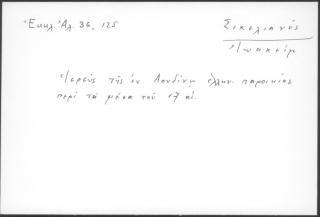 Ἐκκλ. Ἀλ. 36, 125
Σικελιανός
Ἰωακείμ
Ἱερεὺς τῆς ἐν Λονδίνῳ ἑλλην. παροικίας
περὶ τὰ μέσα τοῦ αἰ.